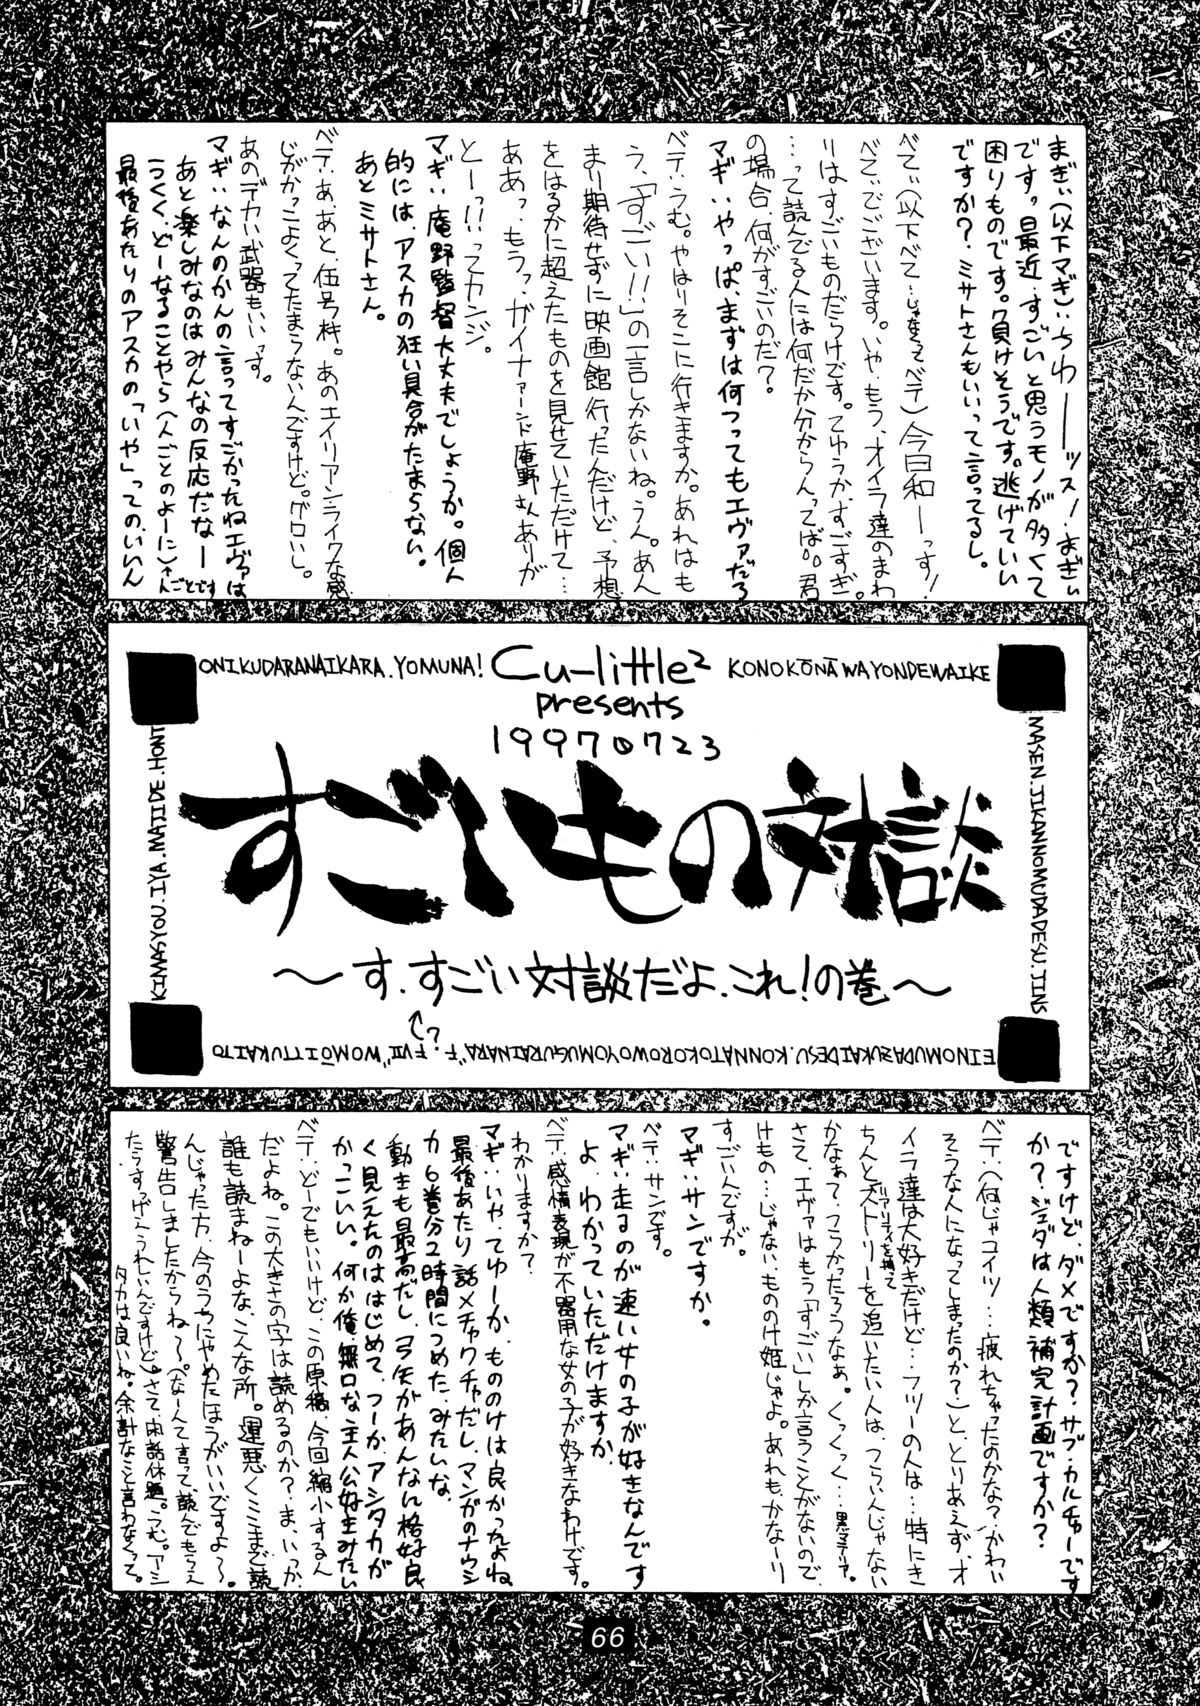 まぎぃ(以下マギ):ちわーーッス！まぎぃ
です。最近、すごいと思うモノが多くて
困りものです。負けそうです。逃げていい
ですか？ミサトさんもいいって言ってるし。
べてぃ(以下べて…じゃなくってベテ)今日和ーっす！
べてぃでございます。いや、もう、オイラ達のまわ
りはすごいものだらけです。てゆうか、すごすぎ。
…って読んでる人には何だか分からんってば。君
の場合、何がすごいのだ？
マギ:いやっぱまずは何つってもエヴァだろ
ベテ:うむ。やはりそこに行きますか。あれはも
う、「すごい!!」の一言しかないね。うん。あん
まり期待せずに映画館行ったんだけど、予想
をはるかに超えたものを見せていただけて…
ああっ、もうっ、ガイナァーンド庵野さんありが
とーっ!!ってカンジ。
マギ:庵野監督大丈夫でしょうか。個人
的には、アスカの狂い具合がたまらない。
あとミサトさん。
ベテ:あ、あと、伍号杵。あのエイリアン・ライクな感
じがかっこよくってたまらないんですけど。グロいし。
あのデカい武器もいいっす。
マギ:なんのかんの言ってすごかったねエヴァは
あと楽しみなのはみんなの反応だなー
つくく、どーなることやら(人ごとのよーに)
最後あたりのアスカの「いや」っての、いいん
ONIKUDARANAIKARA.YOMUNA!
Cu-little²
KONOKŌNĀWAYONDEWAIKE
presents
19970723
MASEN.JIKANNOMUDADESU.JINS
KINASYOU.IYA.MATIDE.HONT
すごいもの対談
〜す、すごい対談だよ、これ！の巻〜
?
EINOMUDAZUKAIDESU.KONNATOKOROWOYOMUGURAINARA"FFVII"WOMŌITTUKAITO
ですけど、ダメですか？サブ・カルチャーです
か？ジュダは人類補完計画ですか？
ベテ:(何じゃコイツ…疲れちゃったのかな？かわい
そうな人になってしまったのか？)と、とりあえず、オ
イラ達は大好きだけど…フツーの人は…特にき
ちんとストーリーを追いたい人は、つらいんじゃない
かなぁて、つらかったろうなぁ。くっくっく…
さて、エヴァはもう「すごい」しか言うことがないので、
けもの…じゃない、もののけ姫じゃよ。あれもかなーり
すごいんですが。
マギ:サンですか。
ベテ:サンです。
マギ:走るのが速い女の子が好きなんです
よ。わかっていただけますか。
ベテ:感情表現が不器用な女の子が好きなわけです。
わかりますか？
マギ:いや、てゆーか、もののけは良かったよね
最後あたり話メチャクチャだし、マンガのナウシ
カ6巻分2時間につめた、みたいな。
動きも最高だし、弓矢があんなに格好良
く見えたのははじめて、つーか、アシタカが
かっこいい。何か俺、無口な主人公好きみたい
ベテ:どーでもいいけど、この原稿、今回縮小するん
だよね。この大きさの字は読めるのか？ま、いっか、
誰も読まねーよな、こんな所。運悪くここまで読
んじゃった方、今のうちにやめたほうがいいですよ〜。
警告しましたからね〜(なーんて言って読んでもらえ
たらすっげーうれしいんですけど)さて、閑話休題。うむ。アシ
タカは良いね。余計なこと言わなくって。
66